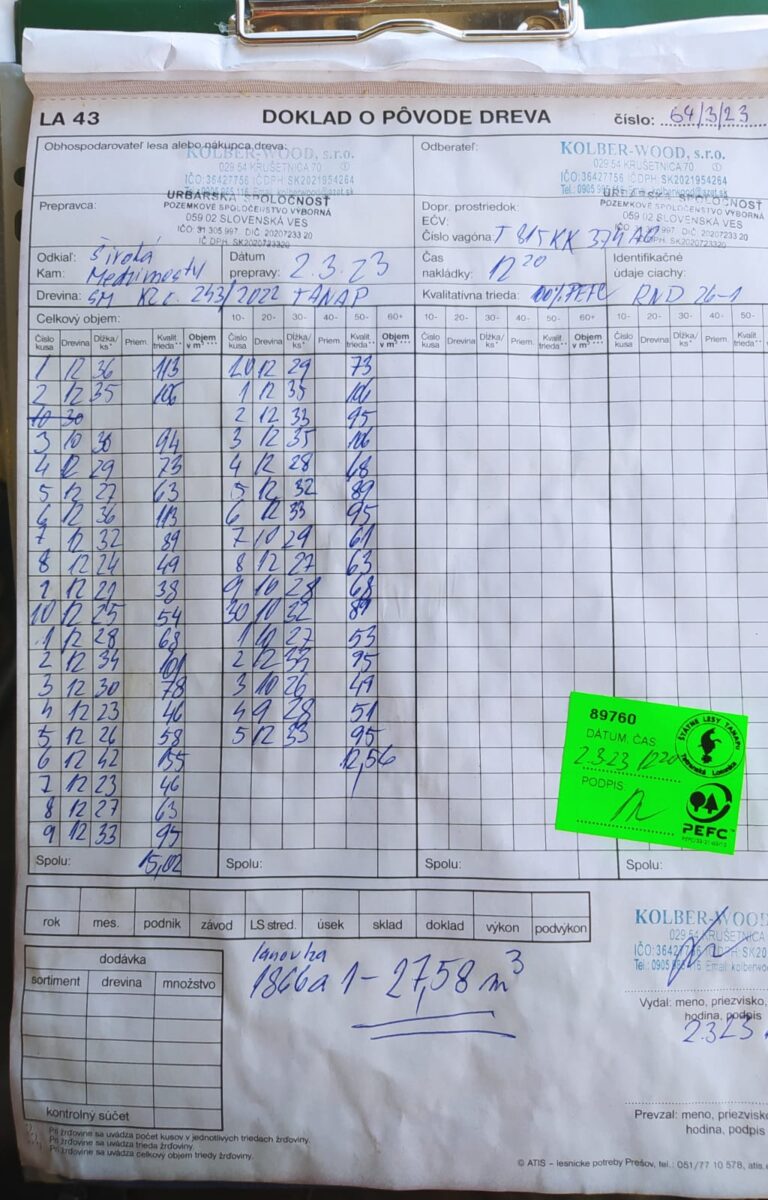 LA 43 DOKLAD O PÔVODE DREVA číslo: 64/3/23
Obhospodarovateľ lesa alebo nákupca dreva: Odberateľ:
KOLBER-WOOD, s.r.o. KOLBER-WOOD, s.r.o.
029 54 KRUŠETNICA 70 029 54 KRUŠETNICA 70
IČO: 36427756 IČ DPH: SK2021954264 IČO: 36427756 IČ DPH: SK2021954264
Prepravca: URBÁRSKA SPOLOČNOSŤ Dopr. prostriedok: URBÁRSKA SPOLOČNOSŤ
POZEMKOVÉ SPOLOČENSTVO VÝBORNÁ EČV: POZEMKOVÉ SPOLOČENSTVO VÝBORNÁ
059 02 SLOVENSKÁ VES Číslo vagóna: 059 02 SLOVENSKÁ VES
IČO: 31 305 997, DIČ: 20207233 20
IČ DPH: SK2020723320
Odkiaľ: Široká Dátum Čas Identifikačné
Kam: prepravy: 2.3.23 nakládky: 12 20 údaje ciachy:
Drevina: SM 243/2022 TANAP Kvalitatívna trieda: 100% PEFC RND 26-1
Celkový objem: 10- 20- 30- 40- 50- 60+ 10- 20- 30- 40- 50- 60+ 10- 20- 30- 40- 50-
Číslo kusa Drevina Dĺžka/ks* Priem. Kvalit. trieda** Objem v m³*** Číslo kusa Drevina Dĺžka/ks* Priem. Kvalit. trieda** Objem v m³*** Číslo kusa Drevina Dĺžka/ks* Priem. Kvalit. trieda** Objem v m³*** Číslo kusa Drevina Dĺžka/ks* Priem. Kvalit. trieda**
1 12 36 113 20 12 29 73
2 12 35 106 1 12 35 106
10 30 2 12 33 95
3 10 36 94 3 12 35 106
4 12 29 73 4 12 28 68
5 12 27 63 5 12 32 89
6 12 36 113 6 12 33 95
7 12 32 89 7 10 29 61
8 12 24 49 8 12 27 63
9 12 38 9 10 28
10 12 25 54 30 10 32
1 12 28 68 1 10 27 53
2 12 34 101 2 12 33 95
3 12 30 78 3 10 26 49
4 12 23 46 4 9 28 51
5 12 26 58 5 12 33 95
6 12 42 155 12,56
7 12 23 46
8 12 27 63
9 12 33 95
Spolu: 15,02 Spolu: Spolu: Spolu:
89760
DÁTUM, ČAS
2.3.23 12 20
PODPIS
ŠTÁTNE LESY TANAPu
Tatranská Lomnica
PEFC
rok mes. podnik závod LS stred. úsek sklad doklad výkon podvýkon
KOLBER-WOOD
029 54 KRUŠETNICA
dodávka
sortiment drevina množstvo
lanovka
1866a 1 – 27,58 m³
Vydal: meno, priezvisko,
hodina, podpis
2.3.23
kontrolný súčet
Prevzal: meno, priezvisko
hodina, podpis
Pri žrďovine sa uvádza počet kusov v jednotlivých triedach žrďoviny.
Pri žrďovine sa uvádza trieda žrďoviny.
Pri žrďovine sa uvádza celkový objem triedy žrďoviny.
© ATIS – lesnícke potreby Prešov, tel.: 051/77 10 578, atis.